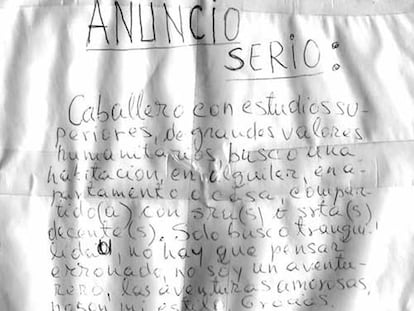 ANUNCIO
SERIO:
Caballero con estudios su-
periores, de grandes valores
humanitarios busco una
habitación en alquiler, en a-
partamento o casa, compar-
tido(a) con sru(s) o srta(s)
decente(s). Solo busco tranqui-
lidad, no hay que pensar
erronado, no soy un aventu-
rero, las aventuras amorosas,
no son mi estilo. Gracias.